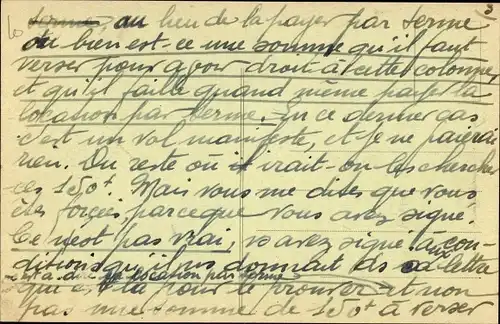 terme, au lieu de la payer par terme
ou bien est-ce une somme qu'il faut
verser pour avoir droit à cette colonne
et qu'il faille quand même payer la
location par terme. En ce dernier cas
c'est un vol manifeste, et je ne paierai
rien. Du reste où irait-on les chercher
ces 150f. Mais vous me dites que vous
êtes forcées, parce que vous avez signé.
Ce n'est pas vrai, vs avez signé aux con-
ditions qu'il vs donnait ds sa lettre
de location par terme
qui est là pour le prouver et non
pas une somme de 150f à verser